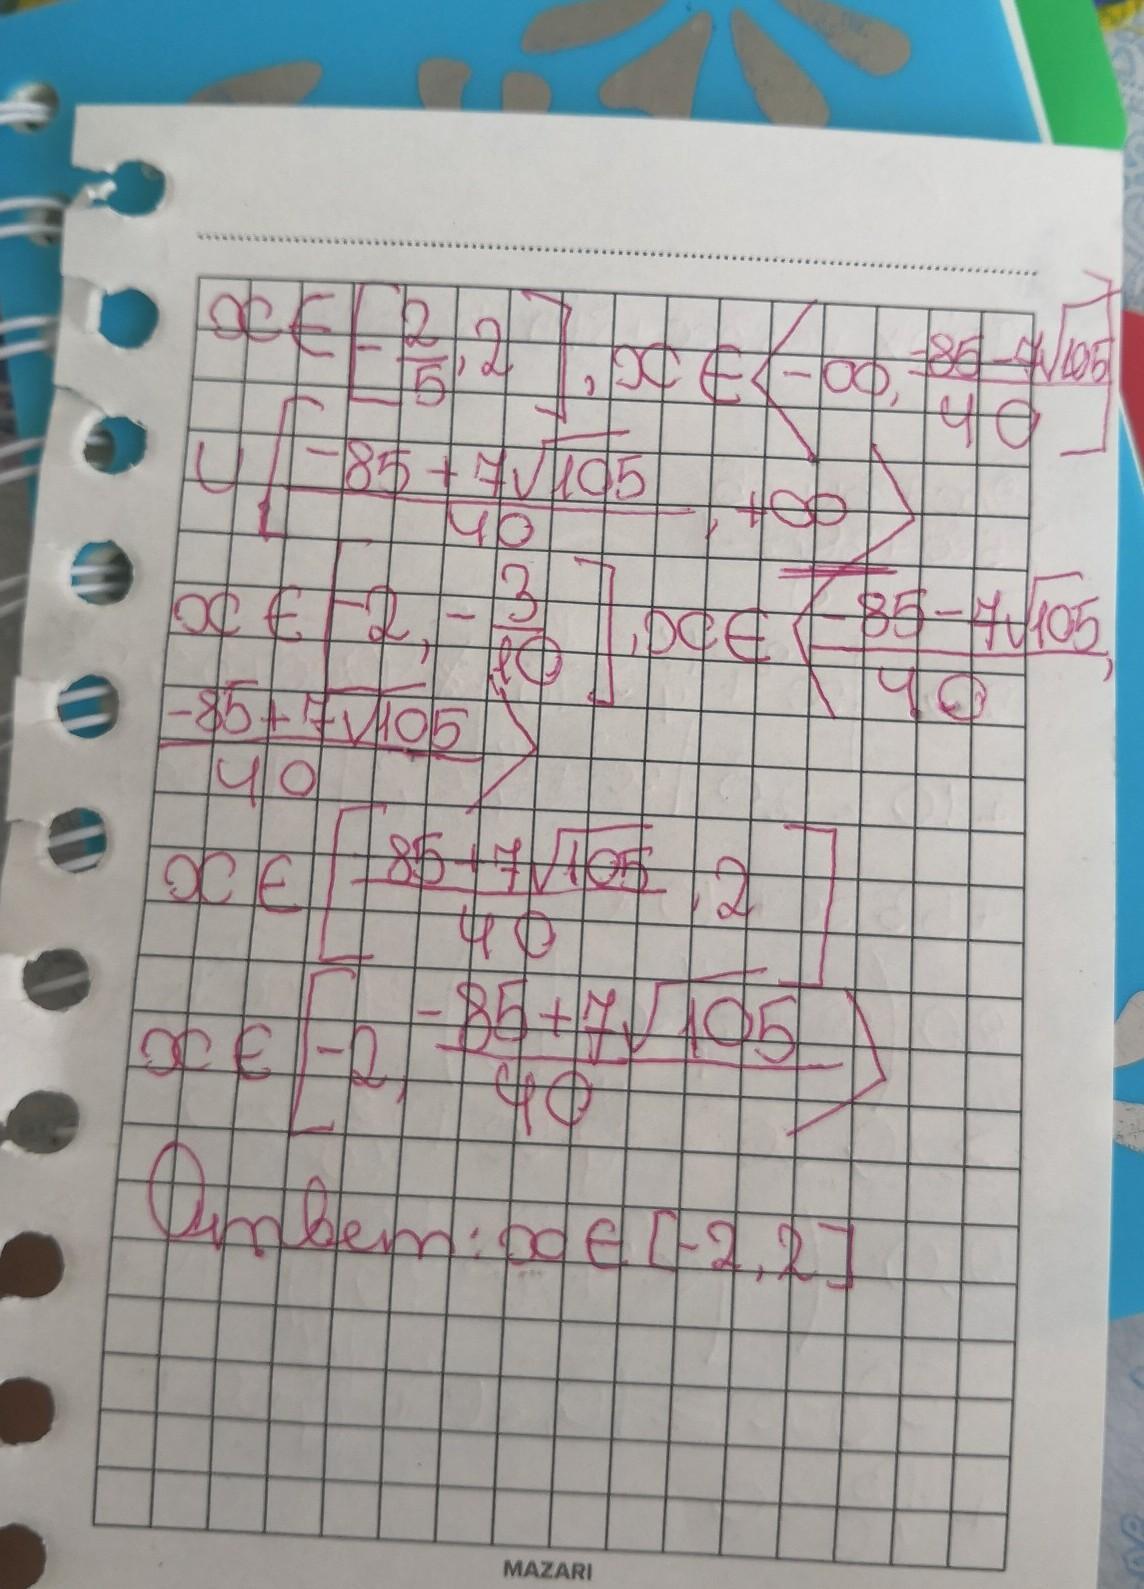 x ∈ [-2/5, 2], x ∈ ⟨-∞, (-85-7√105)/40]
∪ [(-85+7√105)/40, +∞⟩
x ∈ [-2, -3/10], x ∈ ⟨(-85-7√105)/40,
(-85+7√105)/40⟩
x ∈ [(-85+7√105)/40, 2]
x ∈ [-2, (-85+7√105)/40⟩
Ответ: x ∈ [-2, 2]
MAZARI